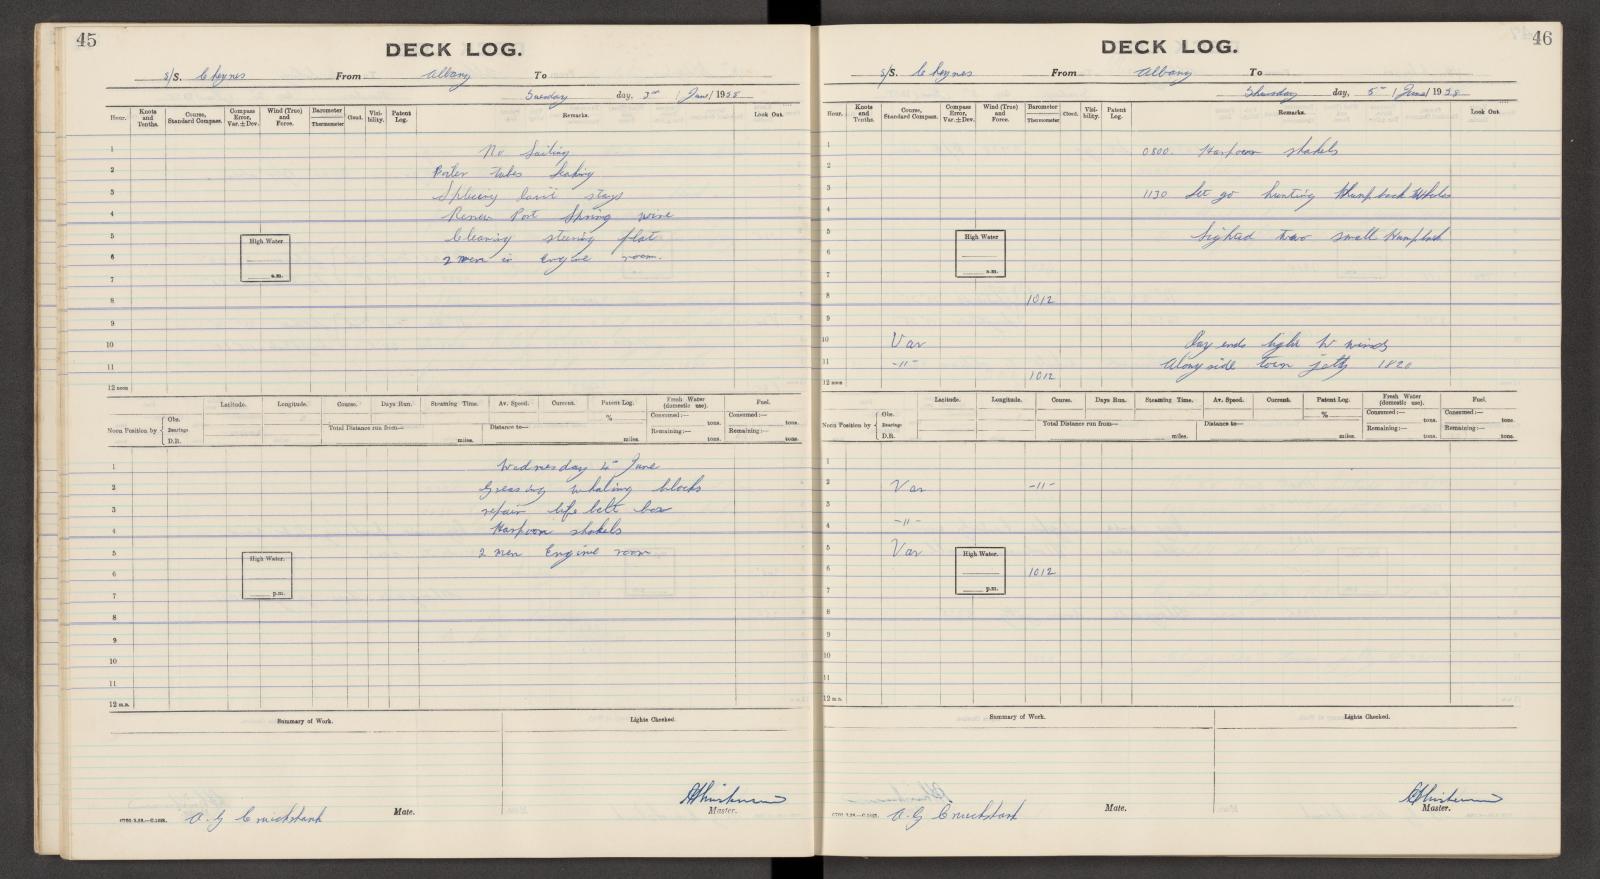 45
DECK LOG.
S/S. Cheynes From Albany To
Tuesday day, 3rd / June / 1958
Hour. Knots and Tenths. Course, Standard Compass. Compass Error, Var. ± Dev. Wind (True) and Force. Barometer Thermometer Cloud. Visibility. Patent Log. Remarks. Look Out.
1 No Sailing
2 Boiler tubes leaking
3 Splicing stays
4 Renew Port Spring wire
5 Cleaning steering flat
6 2 men in Engine room.
High Water
a.m.
7
8
9
10
11
12 noon
Noon Position by Obs. Bearings D.R. Latitude. Longitude. Course. Days Run. Steaming Time. Av. Speed. Current. Patent Log. Fresh Water (domestic use). Fuel.
% Consumed:— tons. Consumed:— tons.
Total Distance run from— miles. Distance to— miles. Remaining:— tons. Remaining:— tons.
1 Wednesday 4th June
2 Greasing whaling blocks
3 repair life belt box
4 Harpoon shakels
5 2 men Engine room
High Water.
p.m.
6
7
8
9
10
11
12 m.n.
Summary of Work. Lights Checked.
A. G Cruickshank Mate. Master.
46
DECK LOG.
S/S. Cheynes From Albany To
Thursday day, 5th / June / 1958
Hour. Knots and Tenths. Course, Standard Compass. Compass Error, Var. ± Dev. Wind (True) and Force. Barometer Thermometer Cloud. Visibility. Patent Log. Remarks. Look Out.
1 0800. Harpoon shakels
2
3 1130 Let go hunting Humpback Whales
4
5 Sighted two small Humpback
High Water
a.m.
6
7
8 1012
9
10 Var Day ends light W winds
11 -11- Alongside town jetty 1820
12 noon 1012
Noon Position by Obs. Bearings D.R. Latitude. Longitude. Course. Days Run. Steaming Time. Av. Speed. Current. Patent Log. Fresh Water (domestic use). Fuel.
% Consumed:— tons. Consumed:— tons.
Total Distance run from— miles. Distance to— miles. Remaining:— tons. Remaining:— tons.
1
2 Var -11-
3
4 -11-
5 Var
High Water.
p.m.
6 1012
7
8
9
10
11
12 m.n.
Summary of Work. Lights Checked.
A. G Cruickshank Mate. Master.